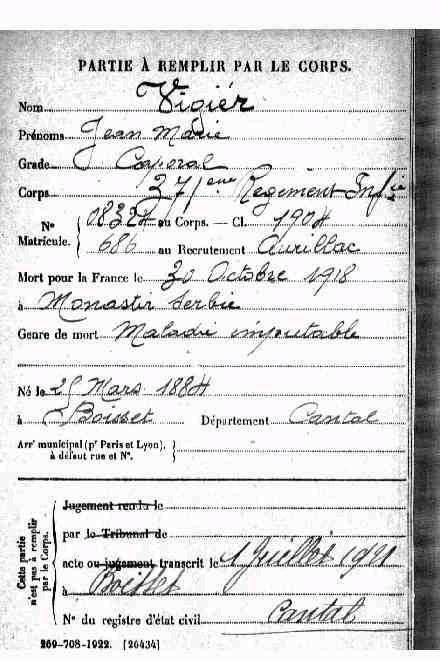 PARTIE À REMPLIR PAR LE CORPS.
Nom Vigier
Prénoms Jean Marie
Grade Caporal
Corps 371eme Régiment Infie
Nº Matricule. 08324 au Corps. — Cl. 1904
686 au Recrutement Aurillac
Mort pour la France le 30 Octobre 1918
à Monastir Serbie
Genre de mort Maladie imputable
Né le 25 Mars 1884
à Boisset Département Cantal
Arrt municipal (pr Paris et Lyon),
à défaut rue et Nº.
Cette partie n'est pas à remplir par le Corps.
Jugement rendu le
par le Tribunal de
acte ou jugement transcrit le 1 Juillet 1921
à Boisset
Nº du registre d'état civil Cantal
269-708-1922. [26434]